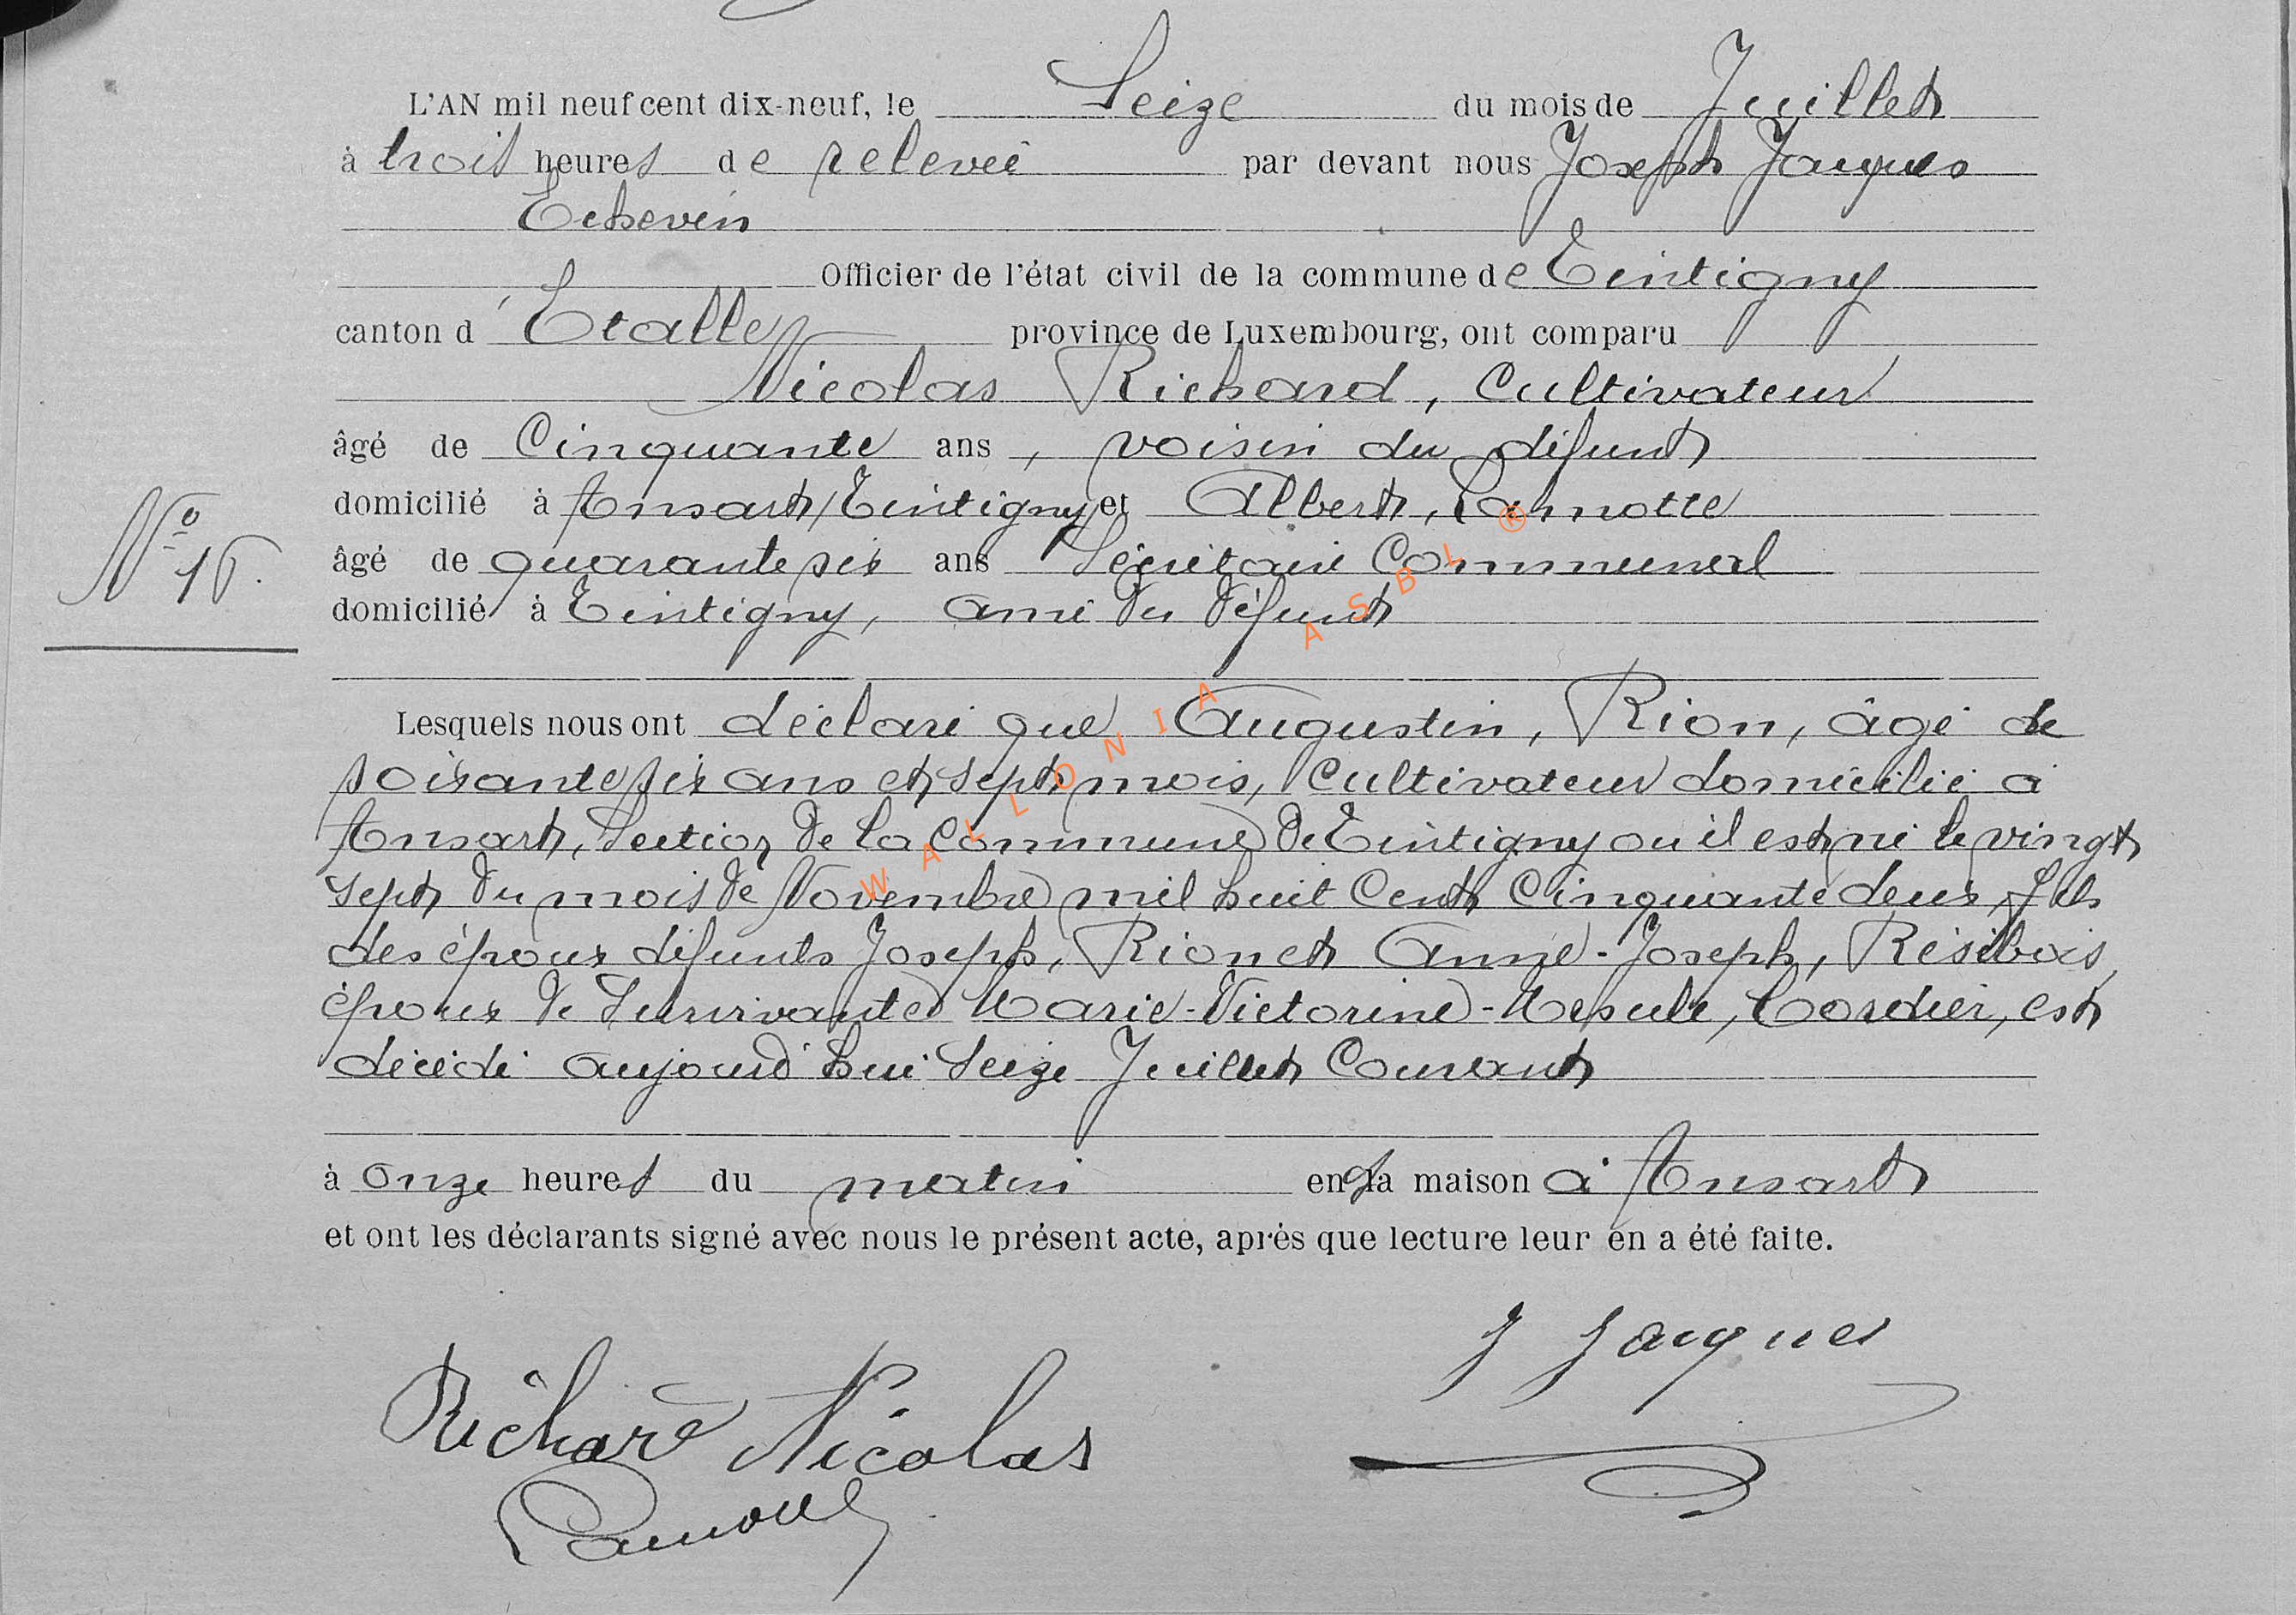 L'AN mil neuf cent dix-neuf, le Seize du mois de Juillet
à trois heures de relevée par devant nous Joseph Jacques
Echevin
Officier de l'état civil de la commune de Tintigny
canton d'Etalle province de Luxembourg, ont comparu
Nicolas Richard, Cultivateur
âgé de Cinquante ans, voisin du défunt
domicilié à Ansart/Tintigny et Albert, Lamotte
N°
16.
âgé de quarante six ans Sécrétaire Communal
domicilié à Tintigny, ami du défunt
Lesquels nous ont déclaré que Augustin, Rion, âgé de
soixante six ans et sept mois, Cultivateur domicilié à
Ansart, Section de la Commune de Tintigny ou il est né le vingt
sept du mois de Novembre mil huit Cent Cinquante deux, fils
des époux défunts Joseph, Rion et Anne-Joseph, Résibois,
époux de Survivante Marie-Victorine- Cordier, est
décédé aujourd'hui Seize Juillet Courant
à onze heures du matin en sa maison à Ansart
et ont les déclarants signé avec nous le présent acte, après que lecture leur en a été faite.
J Jacques
Richard Nicolas
Lamotte
WALLONIA ASBL ®